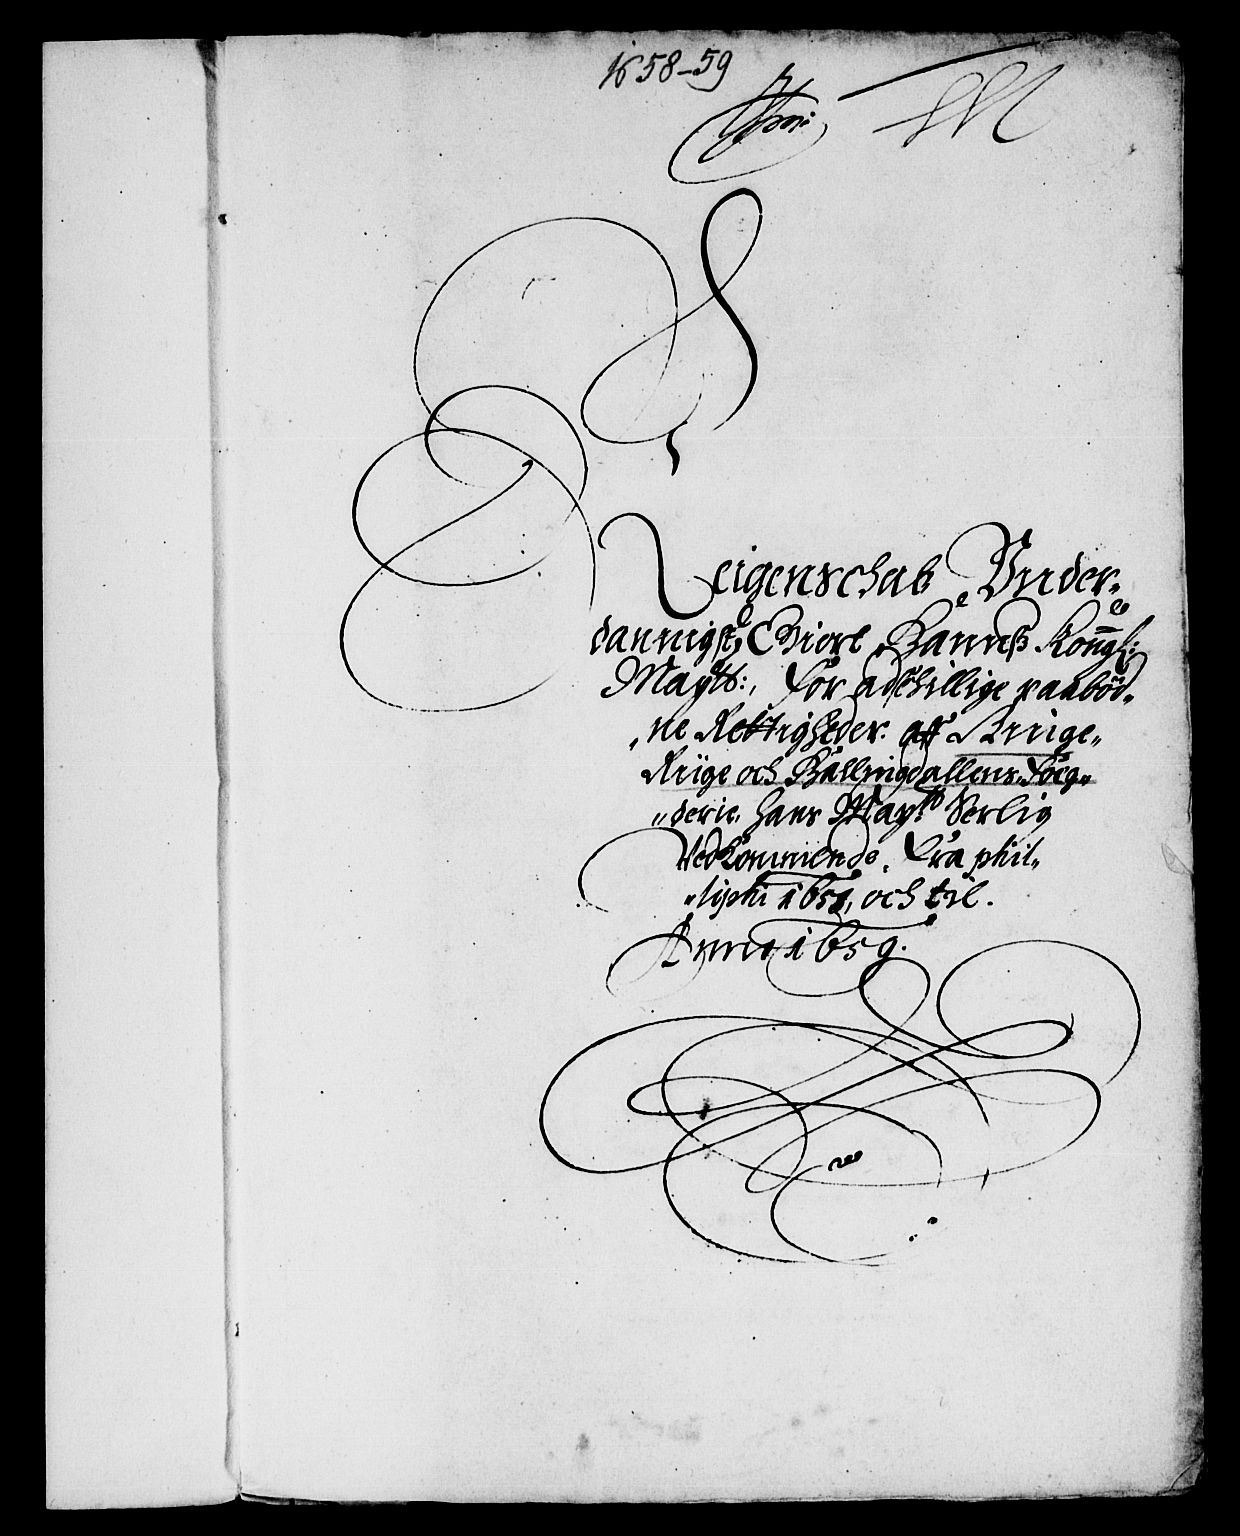 1658-59
Reigenschab Vnder„
dannigst, Giort, Hanns Kongl:
Maytts:, for adschillige paabød„
„ne Rettigheder. aff Ringe„
Riige och Hallingdallens foeg„
„derie. hans Maytt Serlig
Vedkommende, Fra phil„
„liphi 1658, och til.
Anno 1659.